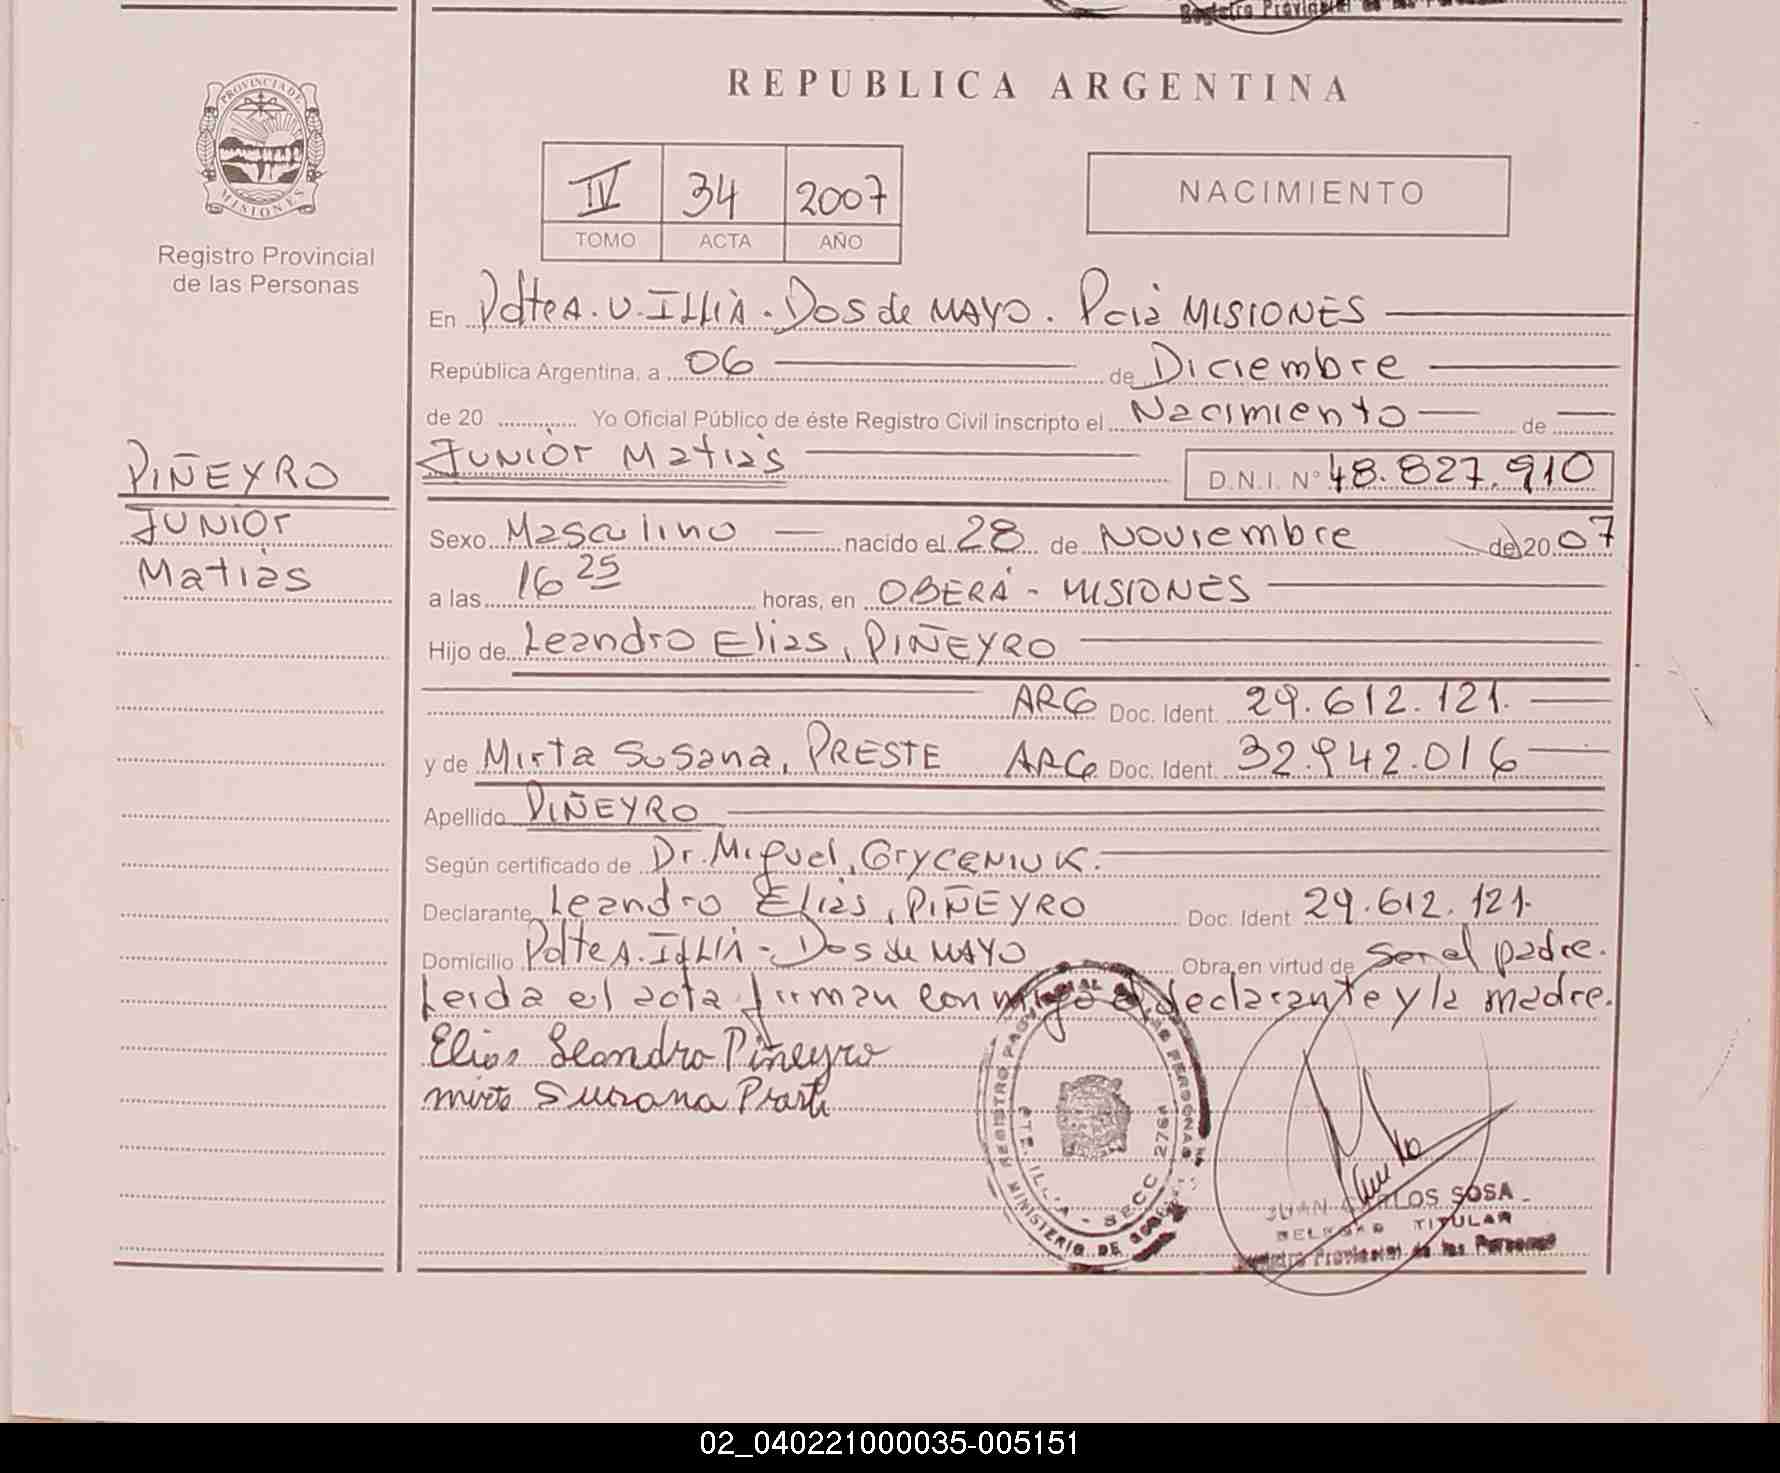 Registro Provincial de las Personas
REPUBLICA ARGENTINA
PROVINCIA DE MISIONES
Registro Provincial
de las Personas
IV 34 2007
TOMO ACTA AÑO
NACIMIENTO
En Pdte A. U. ILLIA - Dos de MAYO. Pcia MISIONES
República Argentina, a 06 de Diciembre
de 20 Yo Oficial Público de éste Registro Civil inscripto el Nacimiento de
JUNIOR Matias D.N.I. N° 48.827.910
PIÑEYRO
JUNIOR
Matias
Sexo Masculino nacido el 28 de Noviembre de 2007
a las 16 25 horas, en OBERÁ - MISIONES
Hijo de Leandro Elias, PIÑEYRO
ARG Doc. Ident. 29.612.121.
y de Mirta Susana, PRESTE ARG Doc. Ident. 32.942.016
Apellido PIÑEYRO
Según certificado de Dr. Miguel, GRYCENIUK.
Declarante Leandro Elias, PIÑEYRO Doc. Ident 29.612.121.
Domicilio Pdte A. ILLIA - Dos de MAYO Obra en virtud de ser el padre.
Leida el acta firman conmigo el declarante y la madre.
Elias Leandro Piñeyro
mirta Susana
REGISTRO PROVINCIAL DE LAS PERSONAS
MINISTERIO DE
SECC 276
JUAN CARLOS SOSA
DELEGADO TITULAR
Registro Provincial de las Personas
02_040221000035-005151